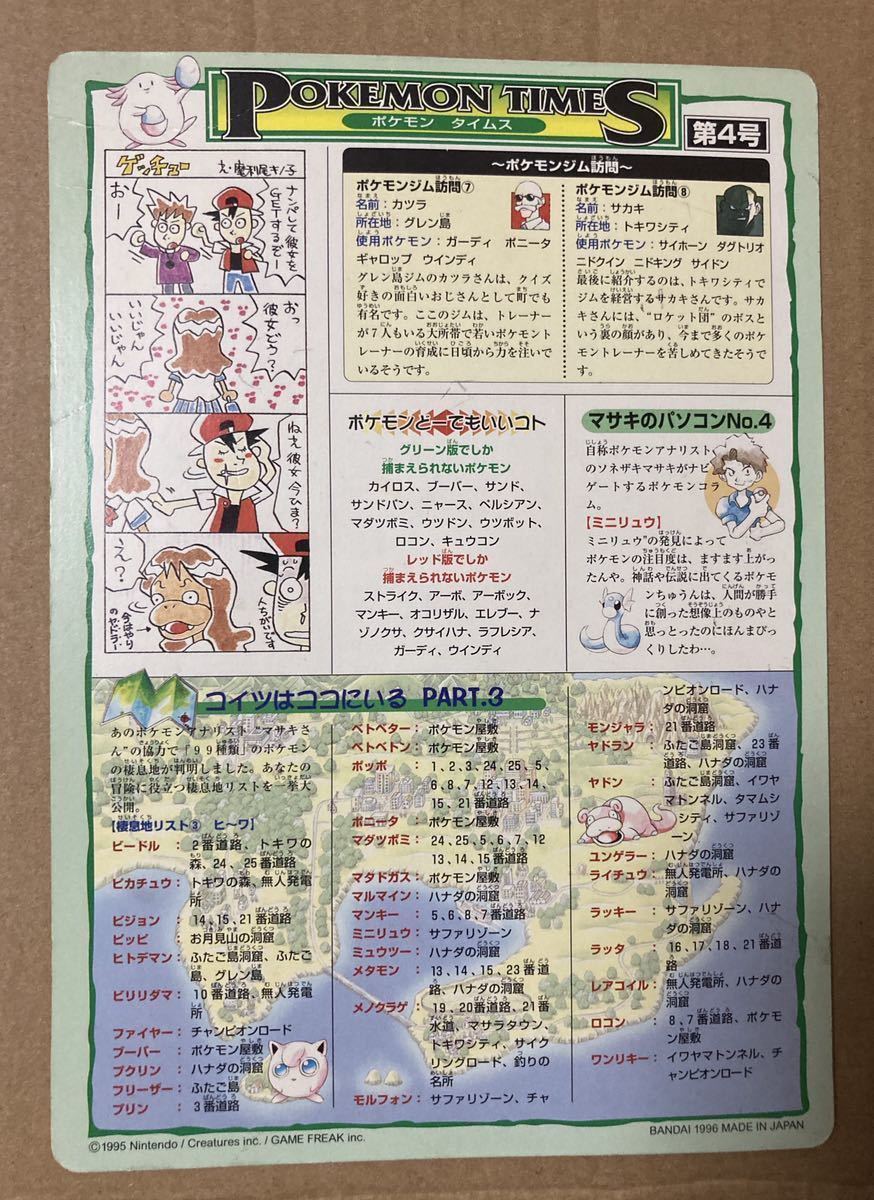 POKEMON TIMES
ポケモン タイムス
第4号
ゲッチュー
え・魔利尾キノ子
ナンパして彼女を
GETするぞー
おー
おっ
彼女どう?
いいじゃん
いいじゃん
ねえ彼女今ひま?
え?
今はやり
のヤドラン
人ちがいです
〜ポケモンジム訪問〜
ポケモンジム訪問⑦
名前:カツラ
所在地:グレン島
使用ポケモン:ガーディ ポニータ
ギャロップ ウインディ
グレン島ジムのカツラさんは、クイズ
好きの面白いおじさんとして町でも
有名です。ここのジムは、トレーナー
が7人もいる大所帯で若いポケモント
レーナーの育成に日頃から力を注いで
いるそうです。
ポケモンジム訪問⑧
名前:サカキ
所在地:トキワシティ
使用ポケモン:サイホーン ダグトリオ
ニドクイン ニドキング サイドン
最後に紹介するのは、トキワシティで
ジムを経営するサカキさんです。サカ
キさんには、“ロケット団”のボスと
いう裏の顔があり、今まで多くのポケ
モントレーナーを苦しめてきたそうで
す。
ポケモンどーでもいいコト
グリーン版でしか
捕まえられないポケモン
カイロス、ブーバー、サンド、
サンドパン、ニャース、ペルシアン、
マダツボミ、ウツドン、ウツボット、
ロコン、キュウコン
レッド版でしか
捕まえられないポケモン
ストライク、アーボ、アーボック、
マンキー、オコリザル、エレブー、ナ
ゾノクサ、クサイハナ、ラフレシア、
ガーディ、ウインディ
マサキのパソコンNo.4
自称ポケモンアナリスト
のソネザキマサキがナビ
ゲートするポケモンコラ
ム。
【ミニリュウ】
ミニリュウ”の発見によって
ポケモンの注目度は、ますます上がっ
たんや。神話や伝説に出てくるポケモ
ンちゅうんは、人間が勝手
に創った想像上のものやと
思っとったのにほんまびっ
くりしたわ…。
コイツはココにいる PART.3
あのポケモンアナリスト“マサキさ
ん”の協力で『99種類』のポケモン
の棲息地が判明しました。あなたの
冒険に役立つ棲息地リストを一挙大
公開。
【棲息地リスト③ ヒ〜ワ】
ビードル:2番道路、トキワの
森、24、25番道路
ピカチュウ:トキワの森、無人発電
所
ピジョン:14、15、21番道路
ピッピ:お月見山の洞窟
ヒトデマン:ふたご島洞窟、ふたご
島、グレン島
ビリリダマ:10番道路、無人発電
所
ファイヤー:チャンピオンロード
ブーバー:ポケモン屋敷
プクリン:ハナダの洞窟
フリーザー:ふたご島
プリン:3番道路
ベトベター:ポケモン屋敷
ベトベトン:ポケモン屋敷
ポッポ:1、2、3、24、25、5、
6、8、7、12、13、14、
15、21番道路
ポニータ:ポケモン屋敷
マダツボミ:24、25、5、6、7、12
13、14、15番道路
マタドガス:ポケモン屋敷
マルマイン:ハナダの洞窟
マンキー:5、6、8、7番道路
ミニリュウ:サファリゾーン
ミュウツー:ハナダの洞窟
メタモン:13、14、15、23番道
路、ハナダの洞窟
メノクラゲ:19、20番道路、21番
水道、マサラタウン、
トキワシティ、サイク
リングロード、釣りの
名所
モルフォン:サファリゾーン、チャ
ンピオンロード、ハナ
ダの洞窟
モンジャラ:21番道路
ヤドラン:ふたご島洞窟、23番
道路、ハナダの洞窟
ヤドン:ふたご島洞窟、イワヤ
マトンネル、タマムシ
シティ、サファリゾー
ン
ユンゲラー:ハナダの洞窟
ライチュウ:無人発電所、ハナダの
洞窟
ラッキー:サファリゾーン、ハナ
ダの洞窟
ラッタ:16、17、18、21番道
路
レアコイル:無人発電所、ハナダの
洞窟
ロコン:8、7番道路、ポケモ
ン屋敷
ワンリキー:イワヤマトンネル、チ
ャンピオンロード
©1995 Nintendo / Creatures inc. / GAME FREAK inc.
BANDAI 1996 MADE IN JAPAN